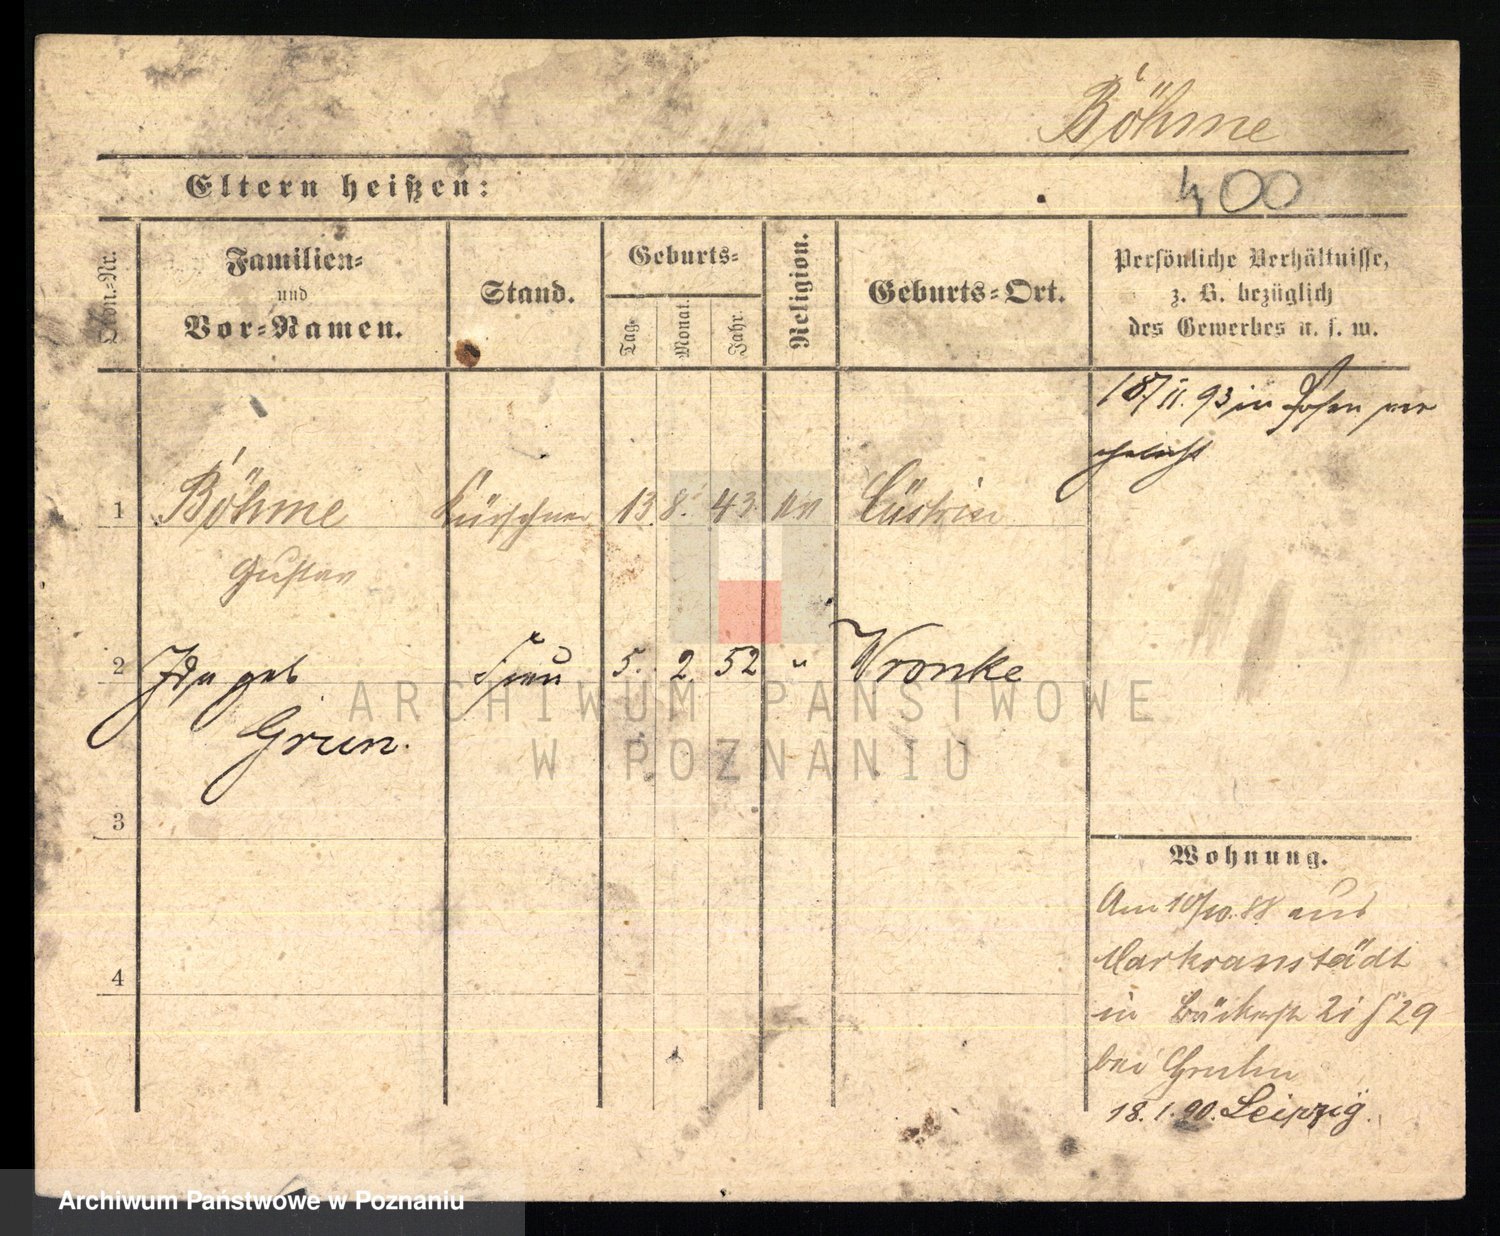 Böhme
Eltern heißen:
400
Nr.
Familien-
und
Vor-Namen.
Stand.
Geburts-
Tag.
Monat.
Jahr.
Religion.
Geburts-Ort.
Persönliche Verhältnisse,
z. B. bezüglich
des Gewerbes u. s. w.
18/11. 93 in Posen ver
ehelicht
1 Böhme Kürschner 13. 8. 43. Cüstrin
Gustav
2 Ida geb Frau 5. 2. 52 " Wronke
Grun.
3
4
Wohnung.
Am 10/10. 88 aus
Markranstädt
in 29
bei
18. 1. 90. Leipzig.
ARCHIWUM PAŃSTWOWE
W POZNANIU
Archiwum Państwowe w Poznaniu